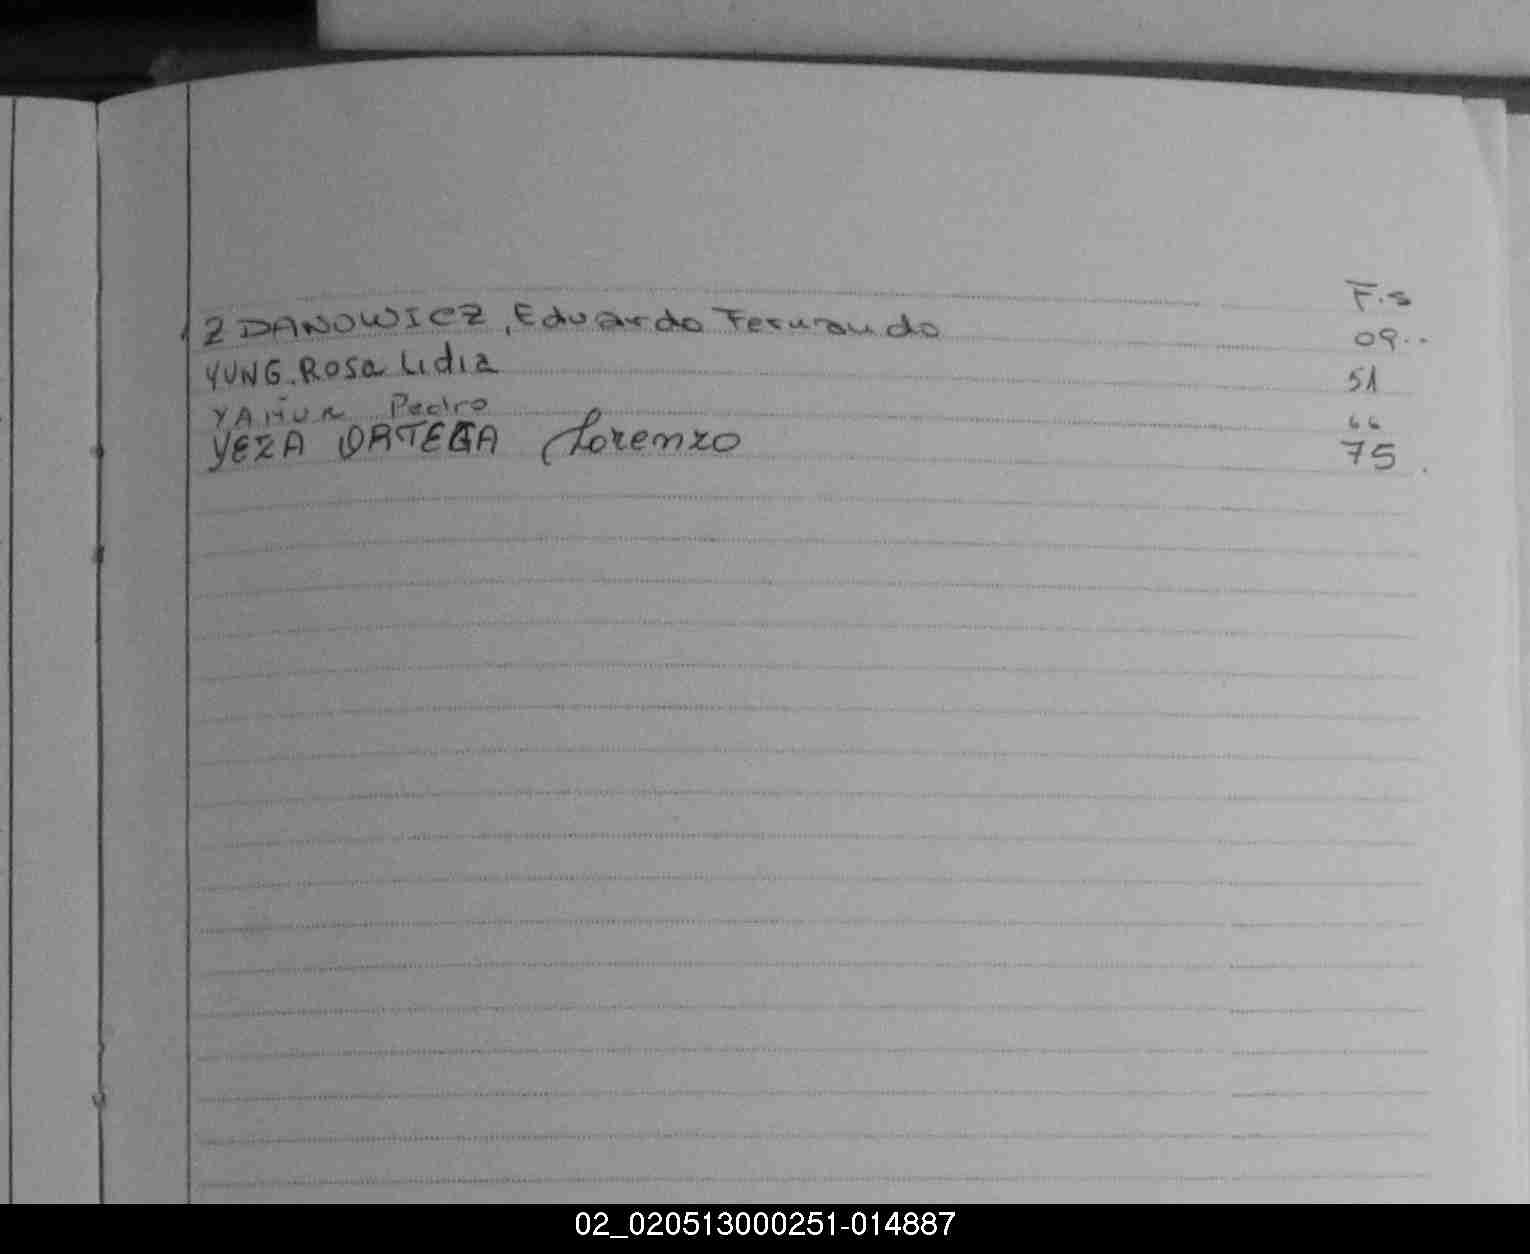 F.s
ZDANOWICZ, Eduardo Fernando 09..
YUNG. Rosa Lidia 51
Pedro 66
YEZA ORTEGA Lorenzo 75
02_020513000251-014887